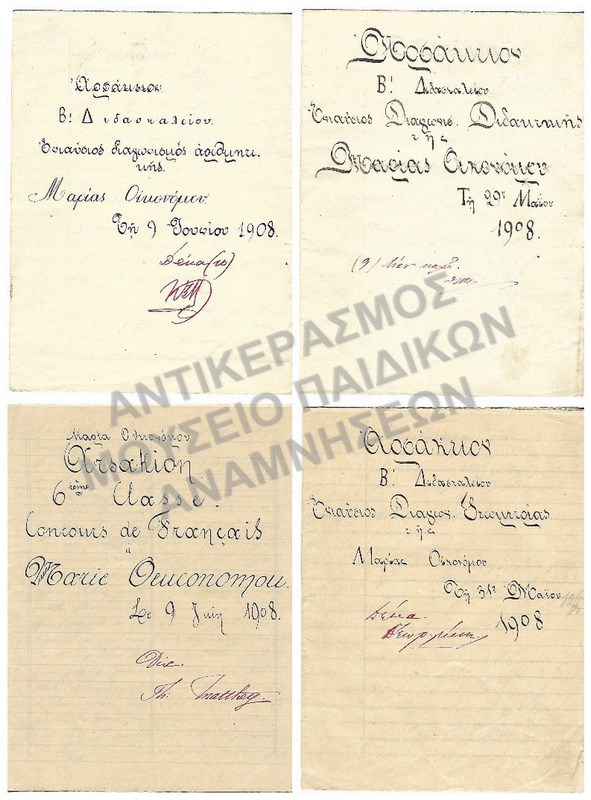 Αρσάκειον
Β! Διδασκαλείον.
Ενιαύσιος διαγωνισμός ἀριθμητι
κῆς.
Μαρίας Οἰκονόμου.
Τῇ 9 Ἰουνίου 1908.
Δέκα (10)
Αρσάκειον
Β! Διδασκαλείου
Ενιαύσιος Διαγωνισ. Διδακτικής
της
Μαρίας Οικονόμου
Τῇ 29ῃ Μαΐου
1908.
(9) λίαν καλῶς.
Μαρία Οικονόμου
Arsakion
6ième Classe.
Concours de Français
à
Marie Oeuconomou.
Le 9 Juin 1908.
Dix
Th.
Αρσάκειον
Β! Διδασκαλείου
Ενιαύσιος Διαγων. Γεωμετρίας
της
Μαρίας Οικονόμου
Τῇ 31ῃ Μαΐου
1908
Δέκα
ΑΝΤΙΚΕΡΑΣΜΟΣ
ΜΟΥΣΕΙΟ ΠΑΙΔΙΚΩΝ
ΑΝΑΜΝΗΣΕΩΝ